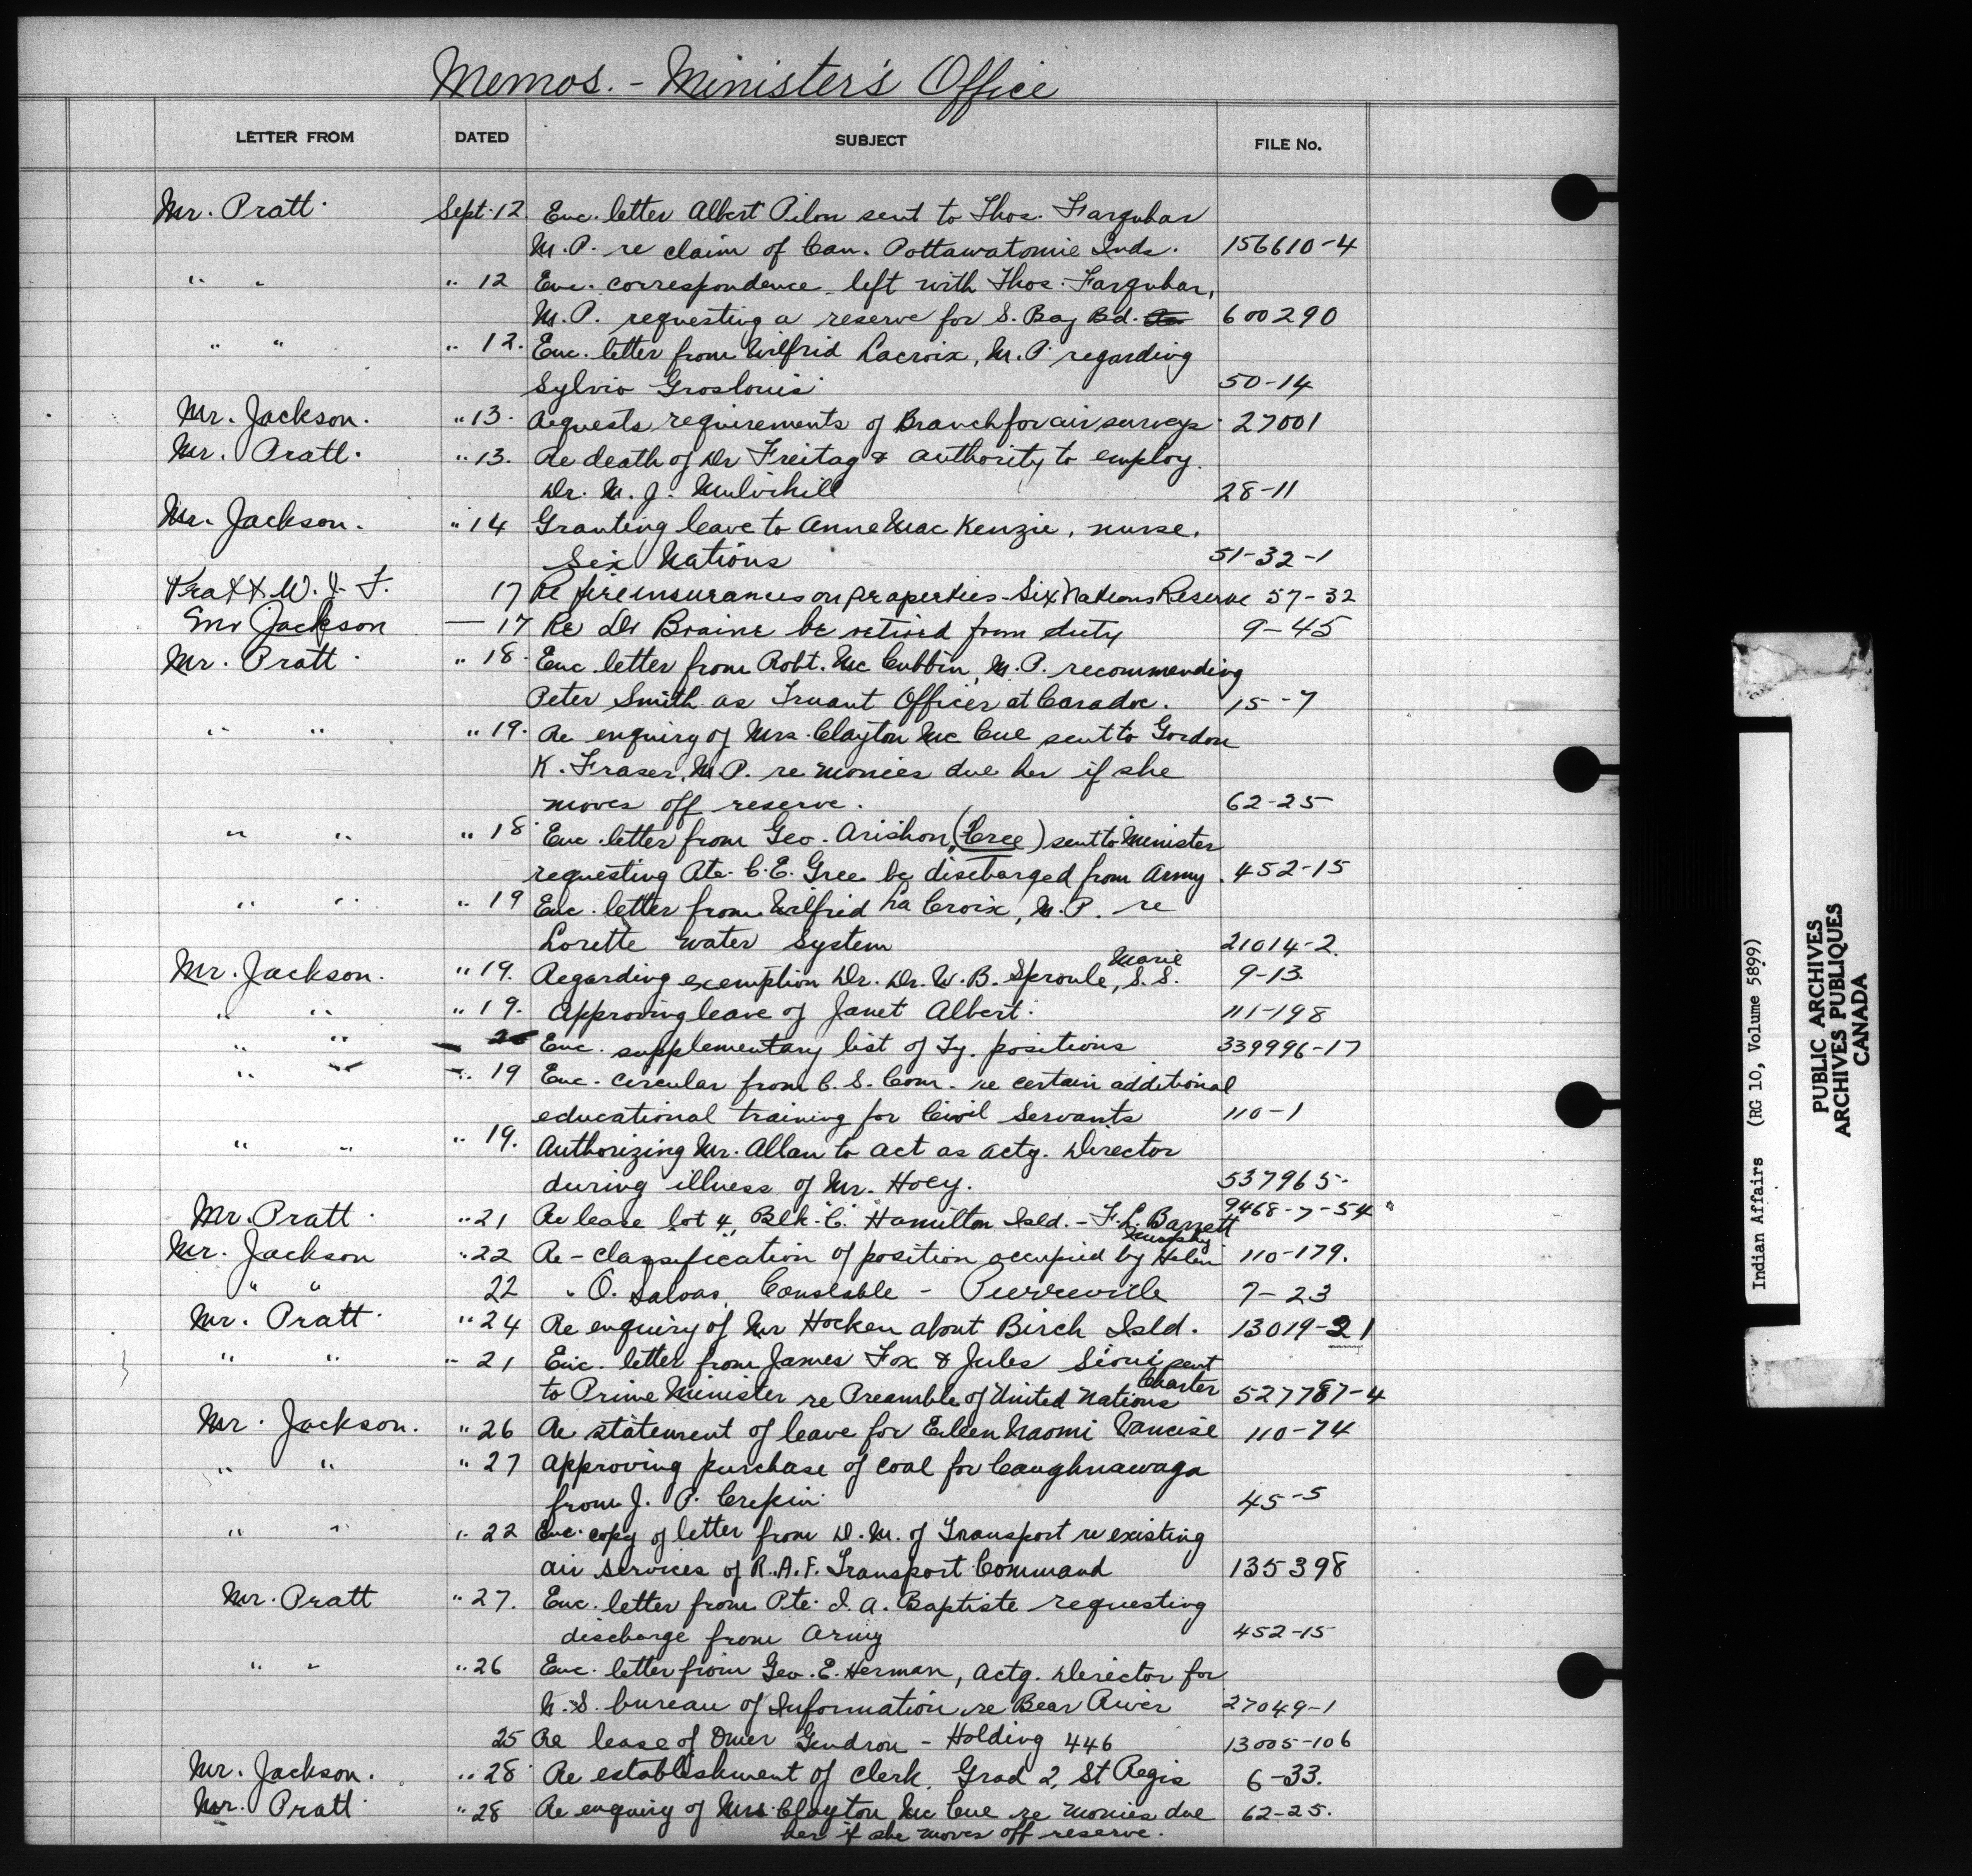 Memos. - Minister's Office
LETTER FROM DATED SUBJECT FILE No.
Mr. Pratt. Sept. 12. Enc. letter Albert Pilon sent to Thos. Farquhar
M.P. re claim of Can. Pottawatomie Inds. 156610-4
" " " 12 Enc. correspondence left with Thos. Farquhar,
M.P. requesting a reserve for S. Bay Bd. 600290
" " " 12. Enc. letter from Wilfrid Lacroix, M.P. regarding
Sylvio Groslouis. 50-14
Mr. Jackson. " 13. Requests requirements of Branch for air surveys. 27001
Mr. Pratt. " 13. Re death of Dr Freitag & authority to employ
Dr. M. J. Mulvihill 28-11
Mr. Jackson. " 14 Granting leave to Anne MacKenzie, nurse,
Six Nations 51-32-1
Pratt W. J. F. 17 Re fire insurances on properties - Six Nations Reserve 57-32
Mr Jackson — 17 Re Dr Braine be retired from duty 9-45
Mr. Pratt " 18. Enc letter from Robt. McCubbin, M.P. recommending
Peter Smith as Truant Officer at Caradoc. 15-7
" " " 19. Re enquiry of Mrs. Clayton McCue sent to Gordon
K. Fraser, M.P. re monies due her if she
moves off reserve. 62-25
" " " 18. Enc. letter from Geo. Arishon, (Cree) sent to Minister
requesting Pte. C.E. Gree be discharged from Army. 452-15
" " " 19 Enc. letter from Wilfrid La Croix, M.P. re
Lorette water system 21014-2.
Mr. Jackson. " 19. Regarding exemption Dr. Dr. W.B. Sproule, S.S. Marie 9-13
" " " 19. Approving leave of Janet Albert. 111-198
" " 20 Enc. supplementary list of Ty. positions 339996-17
" " " 19 Enc. circular from C.S. Com. re certain additional
educational training for Civil Servants 110-1
" " " 19. Authorizing Mr. Allan to act as actg. Director
during illness of Mr. Hoey. 537965.
Mr. Pratt. " 21 Re lease Lot 4, Blk. "C." Hamilton Isld. - F.L. Barrett 9468-7-54
Mr. Jackson " 22 Re-classification of position occupied by Helen 110-179.
" " 22 " O. Salvas, Constable - Pierreville 7-23
Mr. Pratt. " 24 Re enquiry of Mr Hocken about Birch Isld. 13019-21
" " " 21 Enc. letter from James Fox & Jules Sioui sent
to Prime Minister re Preamble of United Nations Charter 527787-4
Mr. Jackson. " 26 Re statement of leave for Eileen Naomi Vancise 110-74
" " " 27 Approving purchase of coal for Caughnawaga
from J. P. Crepin. 45-5
" " " 22 Enc. copy of letter from D.M. of Transport re existing
air services of R.A.F. Transport Command 135398
Mr. Pratt " 27. Enc. letter from Pte. I. A. Baptiste requesting
discharge from Army 452-15
" " " 26 Enc. letter from Geo. E. Herman, Actg. Director for
N.S. bureau of Information re Bear River 27049-1
25 Re lease of Omer Gendron - Holding 446 13005-106
Mr. Jackson. " 28 Re establishment of Clerk, Grad 2, St Regis 6-33.
Mr. Pratt. " 28 Re enquiry of Mrs. Clayton McCue re monies due 62-25.
her if she moves off reserve.
Indian Affairs (RG 10, Volume 5899)
PUBLIC ARCHIVES
ARCHIVES PUBLIQUES
CANADA